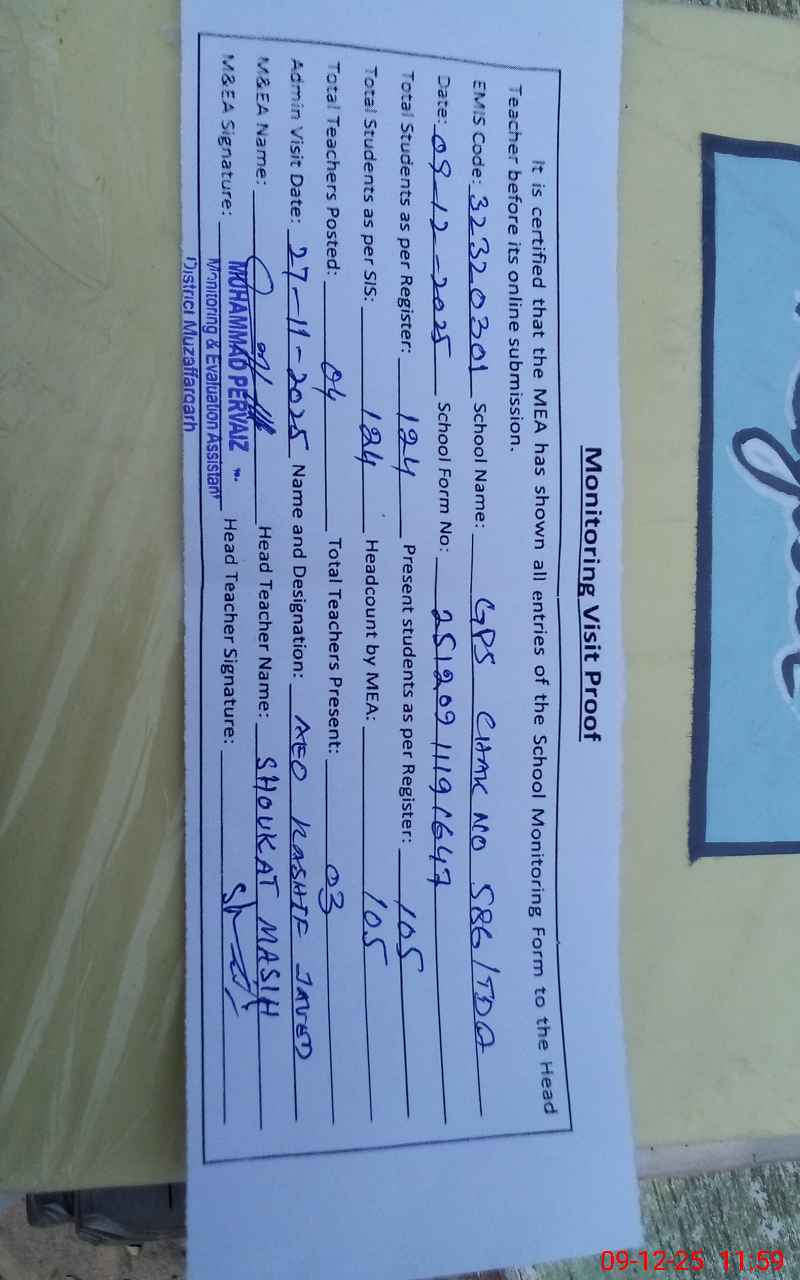 Monitoring Visit Proof
It is certified that the MEA has shown all entries of the School Monitoring Form to the Head
Teacher before its online submission.
EMIS Code: 32320301 School Name: GPS CHAK NO 586/TDA
Date: 09-12-2025 School Form No: 25120911191647
Total Students as per Register: 124 Present students as per Register: 105
Total Students as per SIS: 124 Headcount by MEA: 105
Total Teachers Posted: 04 Total Teachers Present: 03
Admin Visit Date: 27-11-2025 Name and Designation: AEO KASHIF JAVED
M&EA Name: Head Teacher Name: SHOUKAT MASIH
M&EA Signature: Head Teacher Signature:
MUHAMMAD PERVAIZ
Monitoring & Evaluation Assistant
District Muzaffargarh
09-12-25 11:59